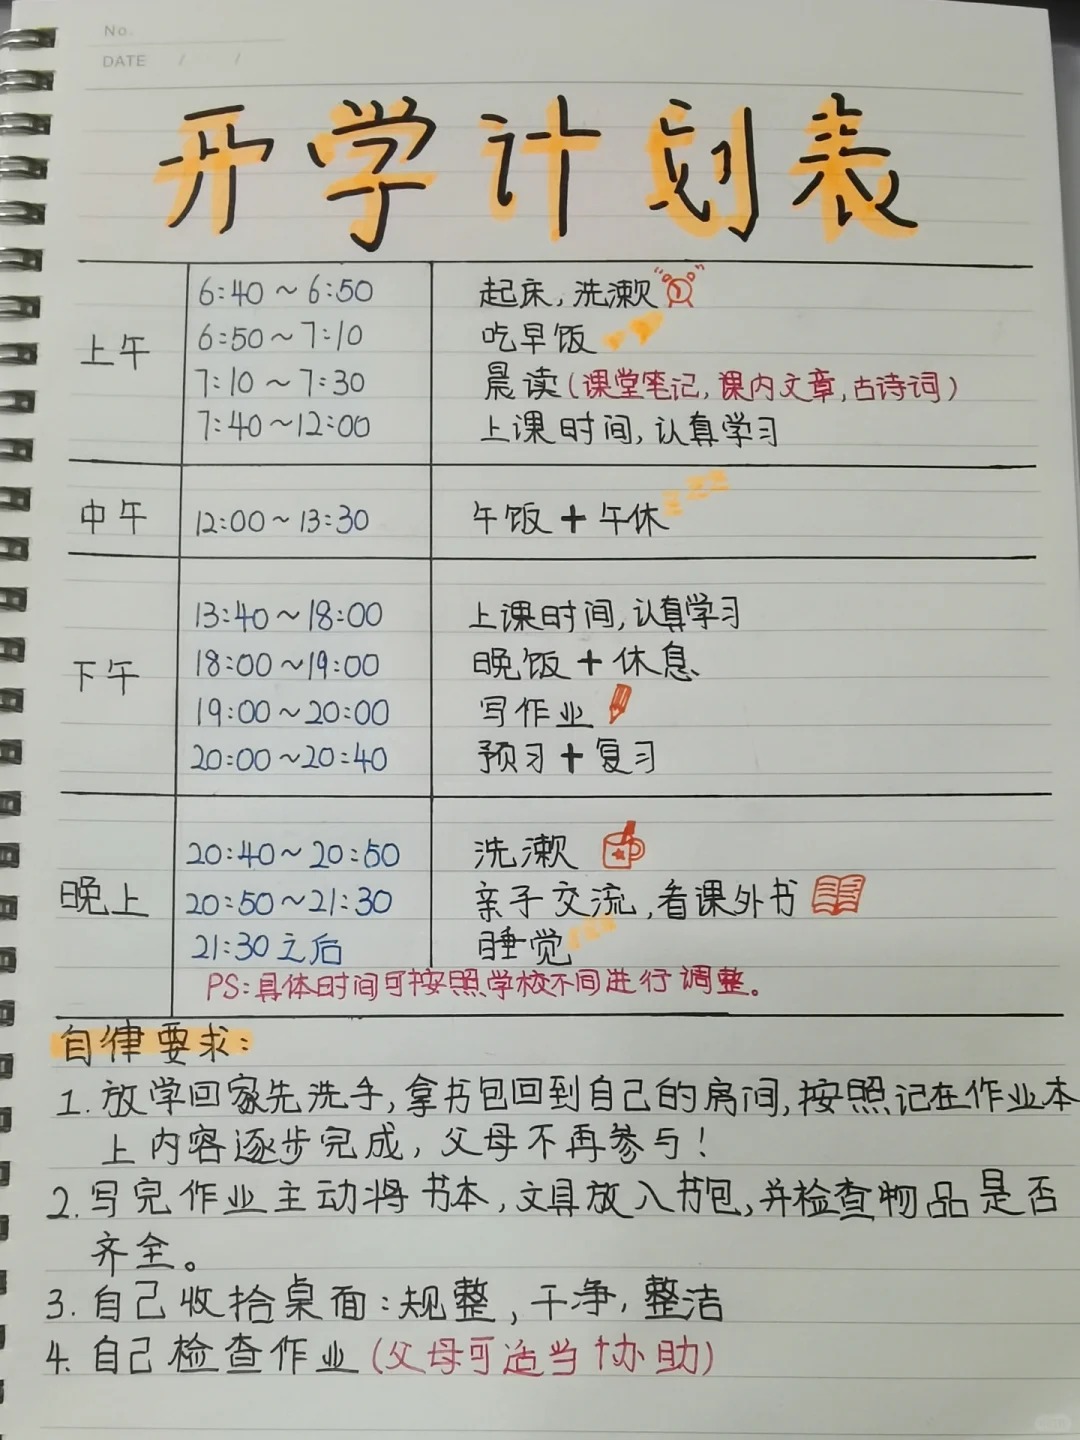 No.
DATE / /
开学计划表
上午
6:40~6:50 起床,洗漱
6:50~7:10 吃早饭
7:10~7:30 晨读(课堂笔记,课内文章,古诗词)
7:40~12:00 上课时间,认真学习
中午 12:00~13:30 午饭+午休 zzz
下午
13:40~18:00 上课时间,认真学习
18:00~19:00 晚饭+休息
19:00~20:00 写作业
20:00~20:40 预习+复习
晚上
20:40~20:50 洗漱
20:50~21:30 亲子交流,看课外书
21:30之后 睡觉 zzz
PS:具体时间可按照学校不同进行调整。
自律要求:
1. 放学回家先洗手,拿书包回到自己的房间,按照记在作业本
上内容逐步完成,父母不再参与!
2. 写完作业主动将书本,文具放入书包,并检查物品是否
齐全。
3. 自己收拾桌面:规整,干净,整洁
4. 自己检查作业(父母可适当协助)